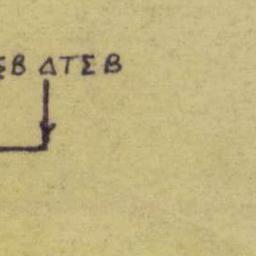 ΣΒ ΔΤΣΒ